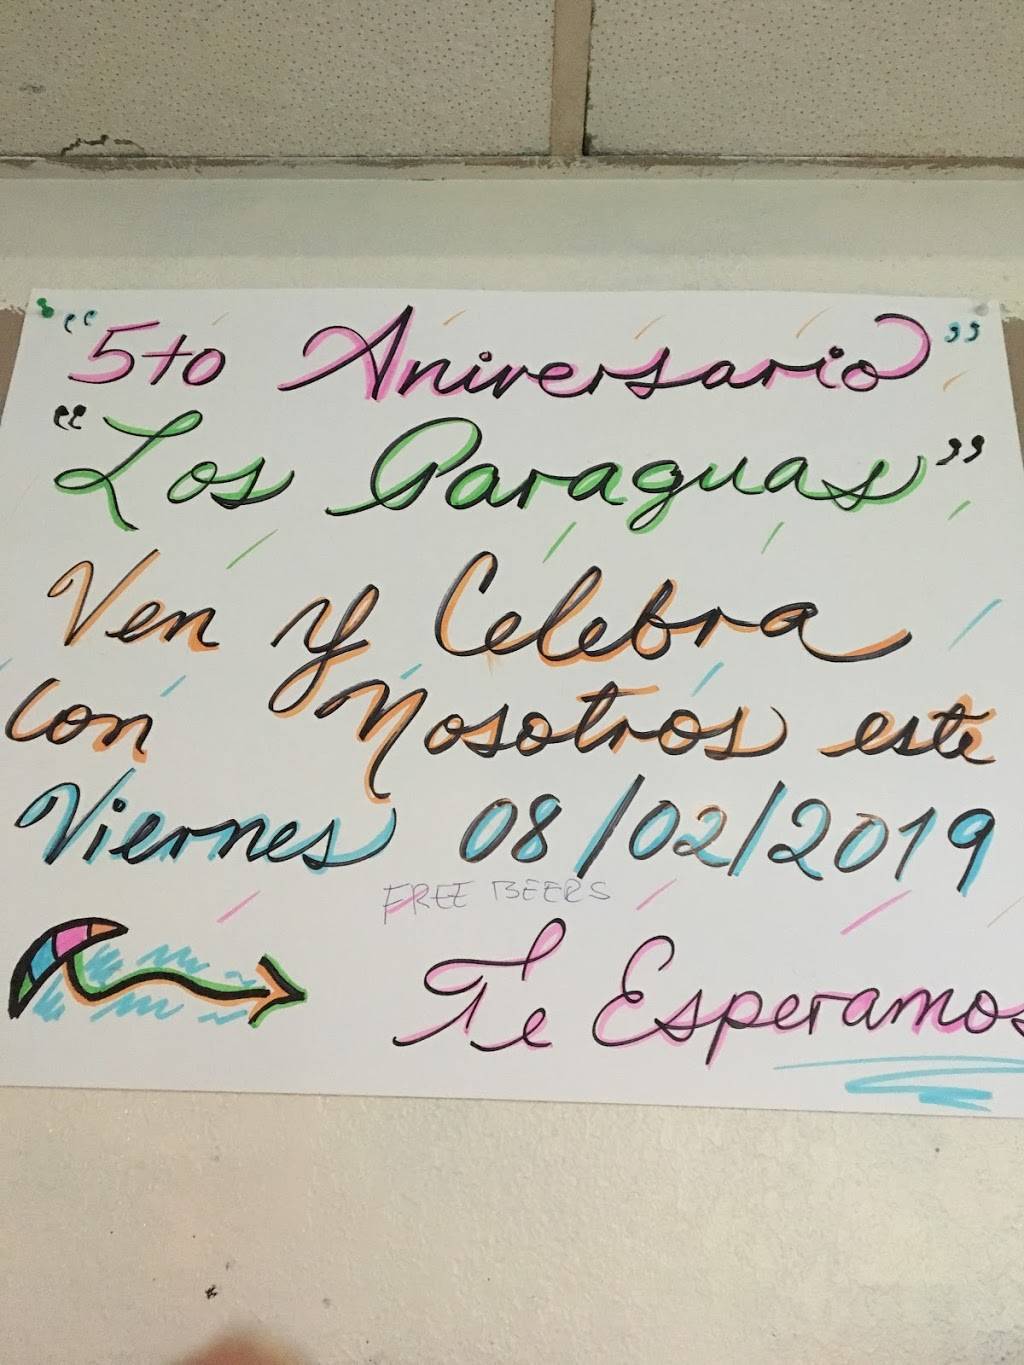 “5to Aniversario”
“Los Paraguas”
Ven y Celebra
con Nosotros este
Viernes 08/02/2019
FREE BEERS
Te Esperamos